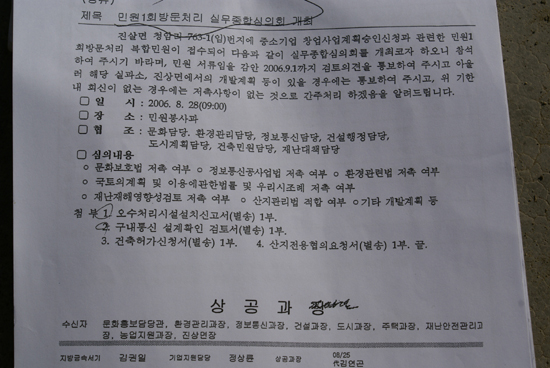 (경유)
제목 민원1회방문처리 실무종합심의회 개최
진상면 청암리 763-1(임)번지에 중소기업 창업사업계획승인신청과 관련한 민원1
회방문처리 복합민원이 접수되어 다음과 같이 실무종합심의회를 개최코자 하오니 참석
하여 주시기 바라며, 민원 서류임을 감안 2006.9.1까지 검토의견을 통보하여 주시고 아울
러 해당 실과소, 진상면에서의 개발계획 등이 있을 경우에는 통보하여 주시고, 위 기한
내 회신이 없는 경우에는 저촉사항이 없는 것으로 간주처리 하겠음을 알려드립니다.
□ 일 시 : 2006. 8. 28(09:00)
□ 장 소 : 민원봉사과
□ 협 조 : 문화담당, 환경관리담당, 정보통신담당, 건설행정담당,
도시계획담당, 건축민원담당, 재난대책담당
□ 심의내용
○ 문화보호법 저촉 여부 ○ 정보통신공사업법 저촉 여부 ○ 환경관련법 저촉 여부
○ 국토의계획 및 이용에관한법률 및 우리시조례 저촉 여부
○ 재난재해영향성검토 저촉 여부 ○ 산지관리법 적합 여부 ○ 기타 개발계획 등
첨 부 1. 오수처리시설설치신고서(별송) 1부.
2. 구내통신 설계확인 검토서(별송) 1부.
3. 건축허가신청서(별송) 1부. 4. 산지전용협의요청서(별송) 1부. 끝.
상 공 과 장
수신자 문화홍보담당관, 환경관리과장, 정보통신과장, 건설과장, 도시과장, 주택과장, 재난안전관리과
장, 농업지원과장, 진상면장
지방행정서기 김권일 기업지원담당 정상균 상공과장 08/25
代김연곤